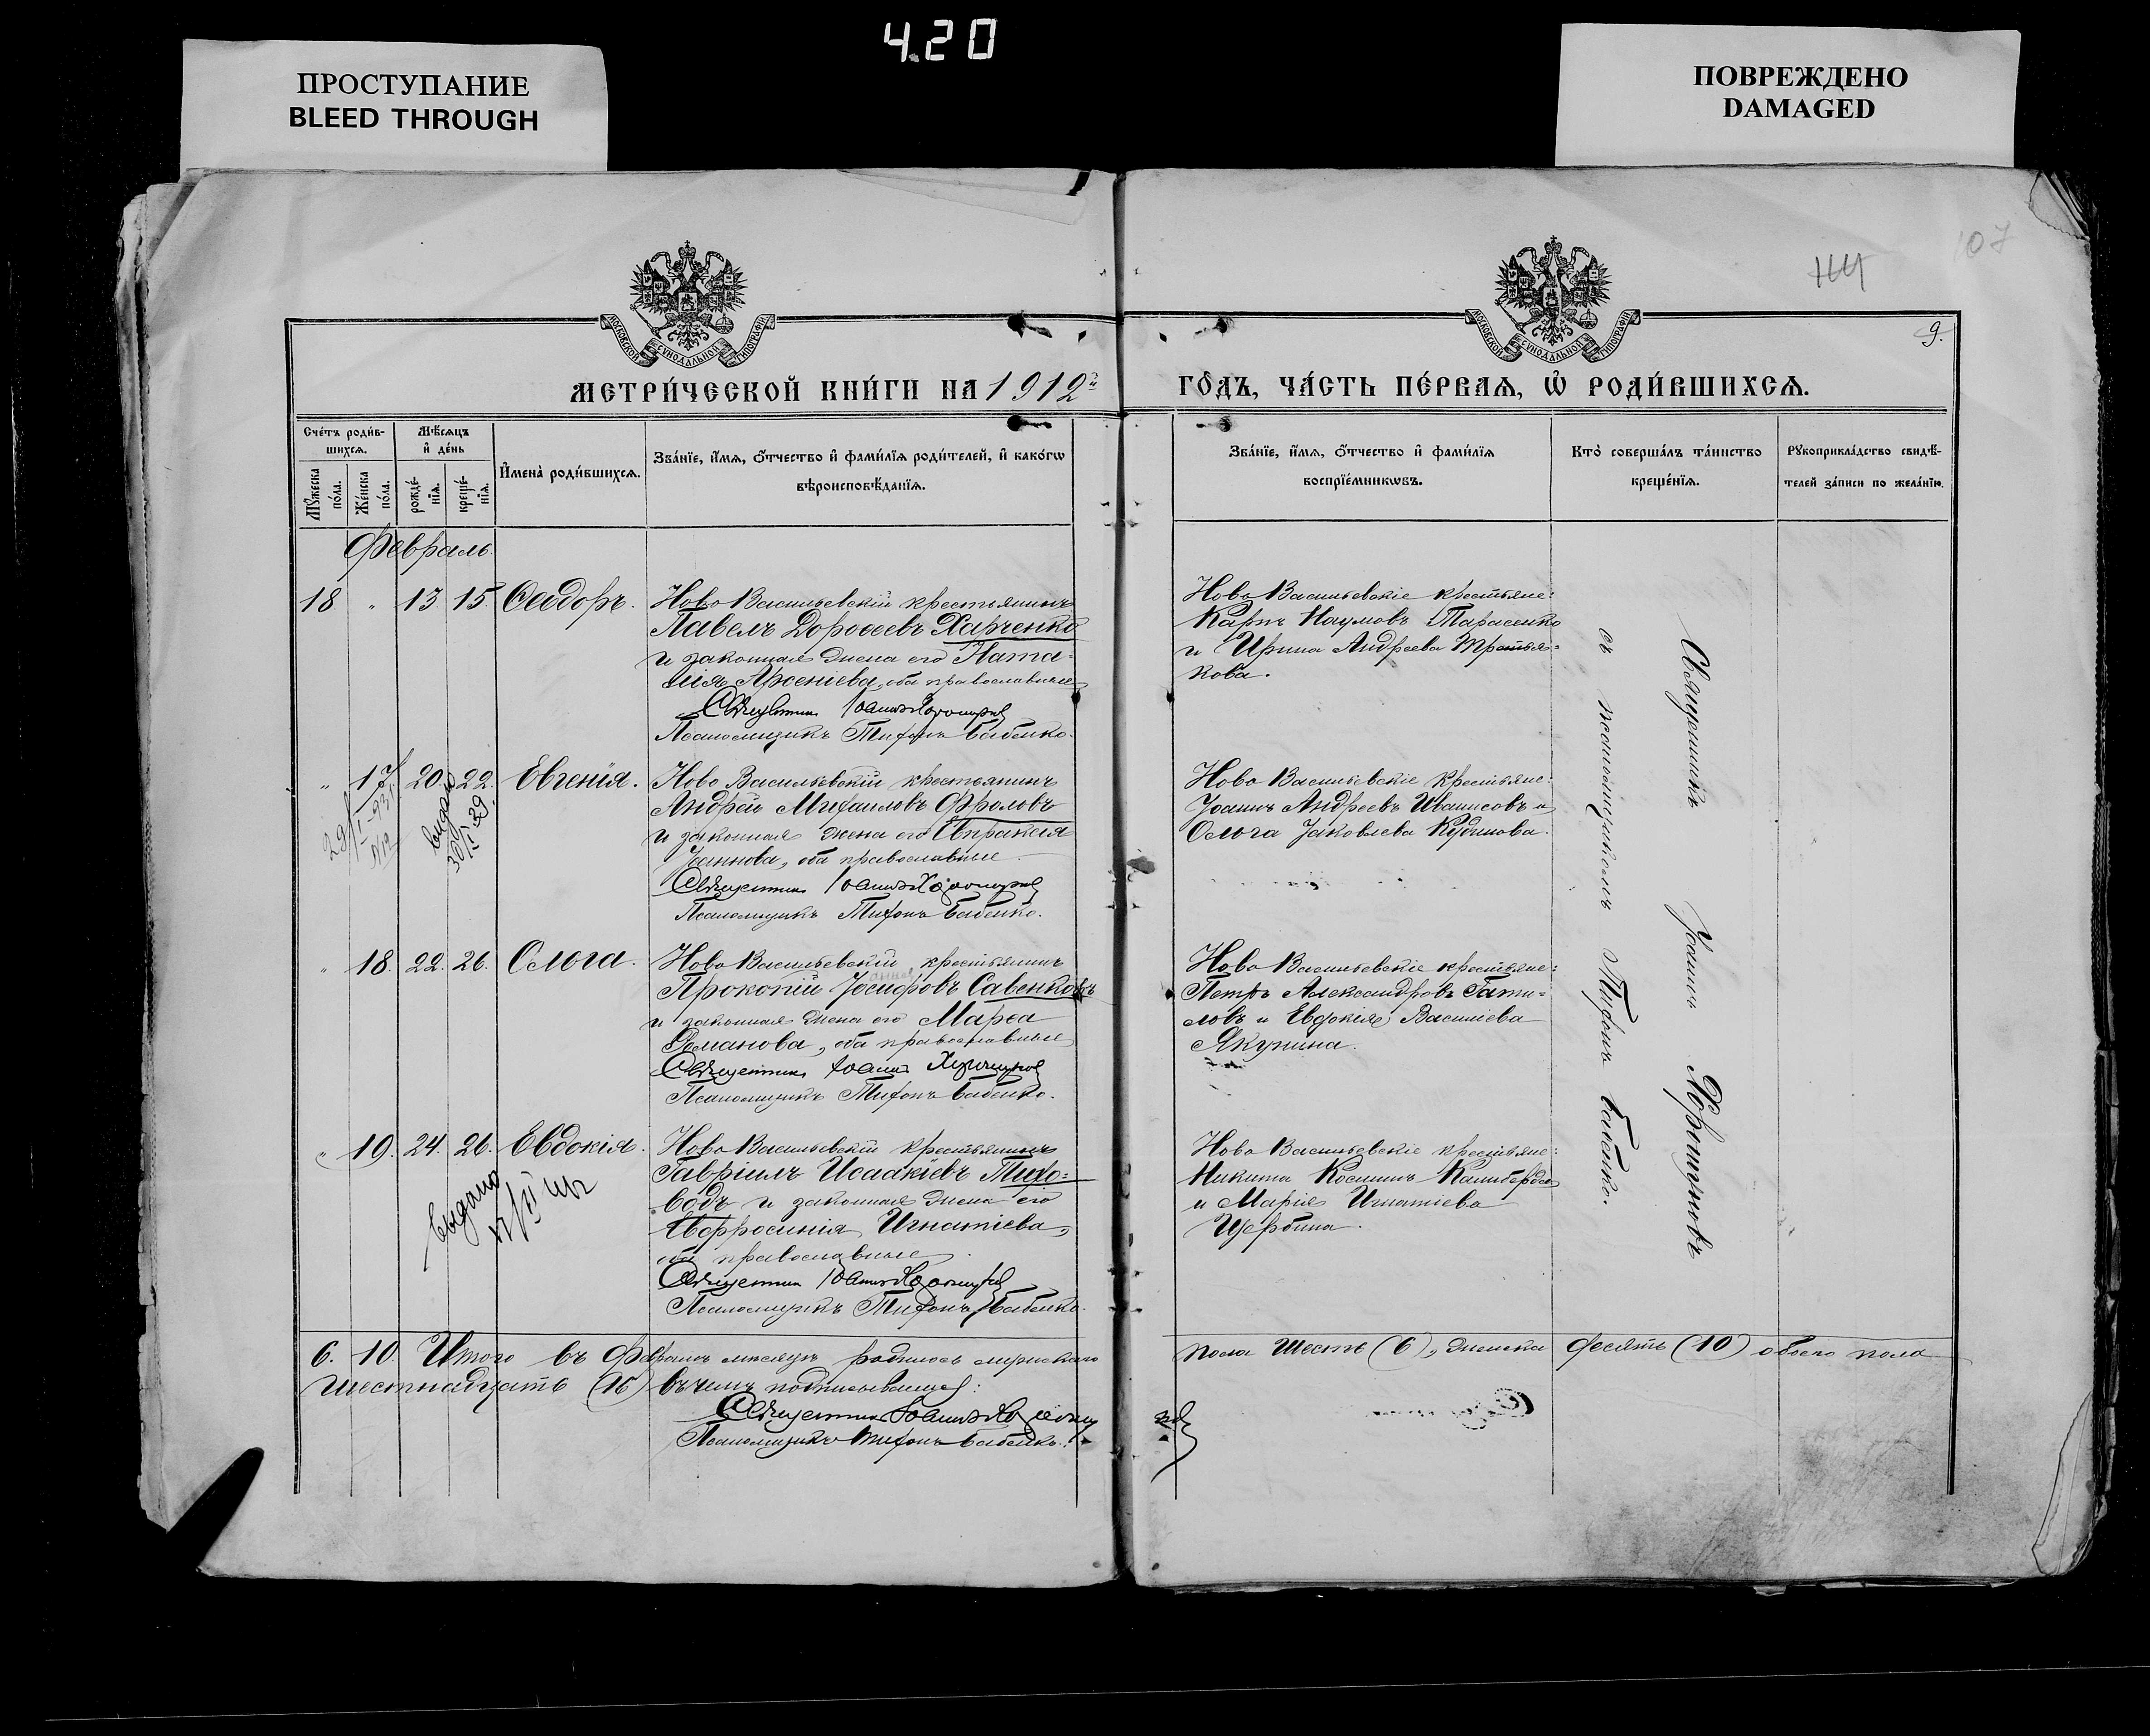 4.20
ПРОСТУПАНИЕ
BLEED THROUGH
ПОВРЕЖДЕНО
DAMAGED
107
9.
МОСКОВСКОЙ СУНОДАЛЬНОЙ ТИПОГРАФІИ
МОСКОВСКОЙ СУНОДАЛЬНОЙ ТИПОГРАФІИ
МЕТРИ́ЧЕСКОЙ КНИ́ГИ НА 1912й
ГО́ДЪ, ЧА́СТЬ ПЕ́РВАѦ, Ѡ҆ РОДИ́ВШИХСѦ.
Сче́тъ роди́в-
шихсѧ.
Мѣ́сѧцъ
и҆ де́нь
Мꙋ́жеска по́ла.
Же́нска по́ла.
рожде́-нїѧ.
креще́-нїѧ.
И҆мена̀ роди́вшихсѧ.
Зва́нїе, и҆́мѧ, ѻ҆́тчество и҆ фами́лїѧ роди́телей, и҆ како́гѡ
вѣроисповѣ́данїѧ.
Зва́нїе, и҆́мѧ, ѻ҆́тчество и҆ фами́лїѧ
воспрїе́мникѡвъ.
Кто̀ соверша́лъ та́инство
креще́нїѧ.
Рꙋкоприкла́дство свидѣ́-
телей за́писи по жела́нїю.
Февраль.
18 " 13 15. Ѳеодоръ. Ново Васильевскій крестьянинъ
Павелъ Дороѳеевъ Харченко
и законная жена его Ната=
лія Арсеніева, оба православные
Священник Іоаннъ Хорошунов
Псаломщикъ Тихонъ Бабенко.
Ново Васильевскіе крестьяне:
Карпъ Наумовъ Тарасенко
и Ирина Андреева Третья=
кова.
" 17. 20. 22. Евгенія. Ново Васильевскій крестьянинъ
Андрей Михаиловъ Фроловъ
и законная жена его Евпраксія
Іоаннова, оба православные
Священник Іоаннъ Хорошунов
Псаломщикъ Тихонъ Бабенко.
выдано
30/XI 39
Ново Васильевскіе крестьяне:
Іоаннъ Андреевъ Иванисовъ и
Ольга Іаковлева Кудинова.
" 18. 22. 26. Ольга. Ново Васильевскій крестьянинъ
Прокопій Іосифовъ Савенковъ
и законная жена его Марѳа
Романова, оба православные
Священник Іоанн Хорошунов
Псаломщикъ Тихонъ Бабенко.
Ново Васильевскіе крестьяне:
Петръ Александровъ Гати=
ловъ и Евдокія Василіева
Якунина.
" 19. 24. 26. Евдокія. Ново Васильевскій крестьянинъ
Гавріилъ Исаакіевъ Тихо=
водъ и законная жена его
Евфросинія Игнатіева,
оба православные
Священник Іоаннъ Хорошунов
Псаломщикъ Тихонъ Бабенко.
Выдано
Ново Васильевскіе крестьяне:
Никита Косминъ Калиберда
и Марія Игнатіева
Щербина.
Священникъ Іоаннъ Хорошуновъ
съ псаломщикомъ Тихонъ Бабенко.
6. 10. Итого въ Февралѣ мѣсяцѣ родилось мужескаго пола шесть (6), женска десять (10) обоего пола
шестнадцать (16) въ чемъ подписываемся:
Священник Іоаннъ Хорошунов
Псаломщикъ Тихонъ Бабенко.